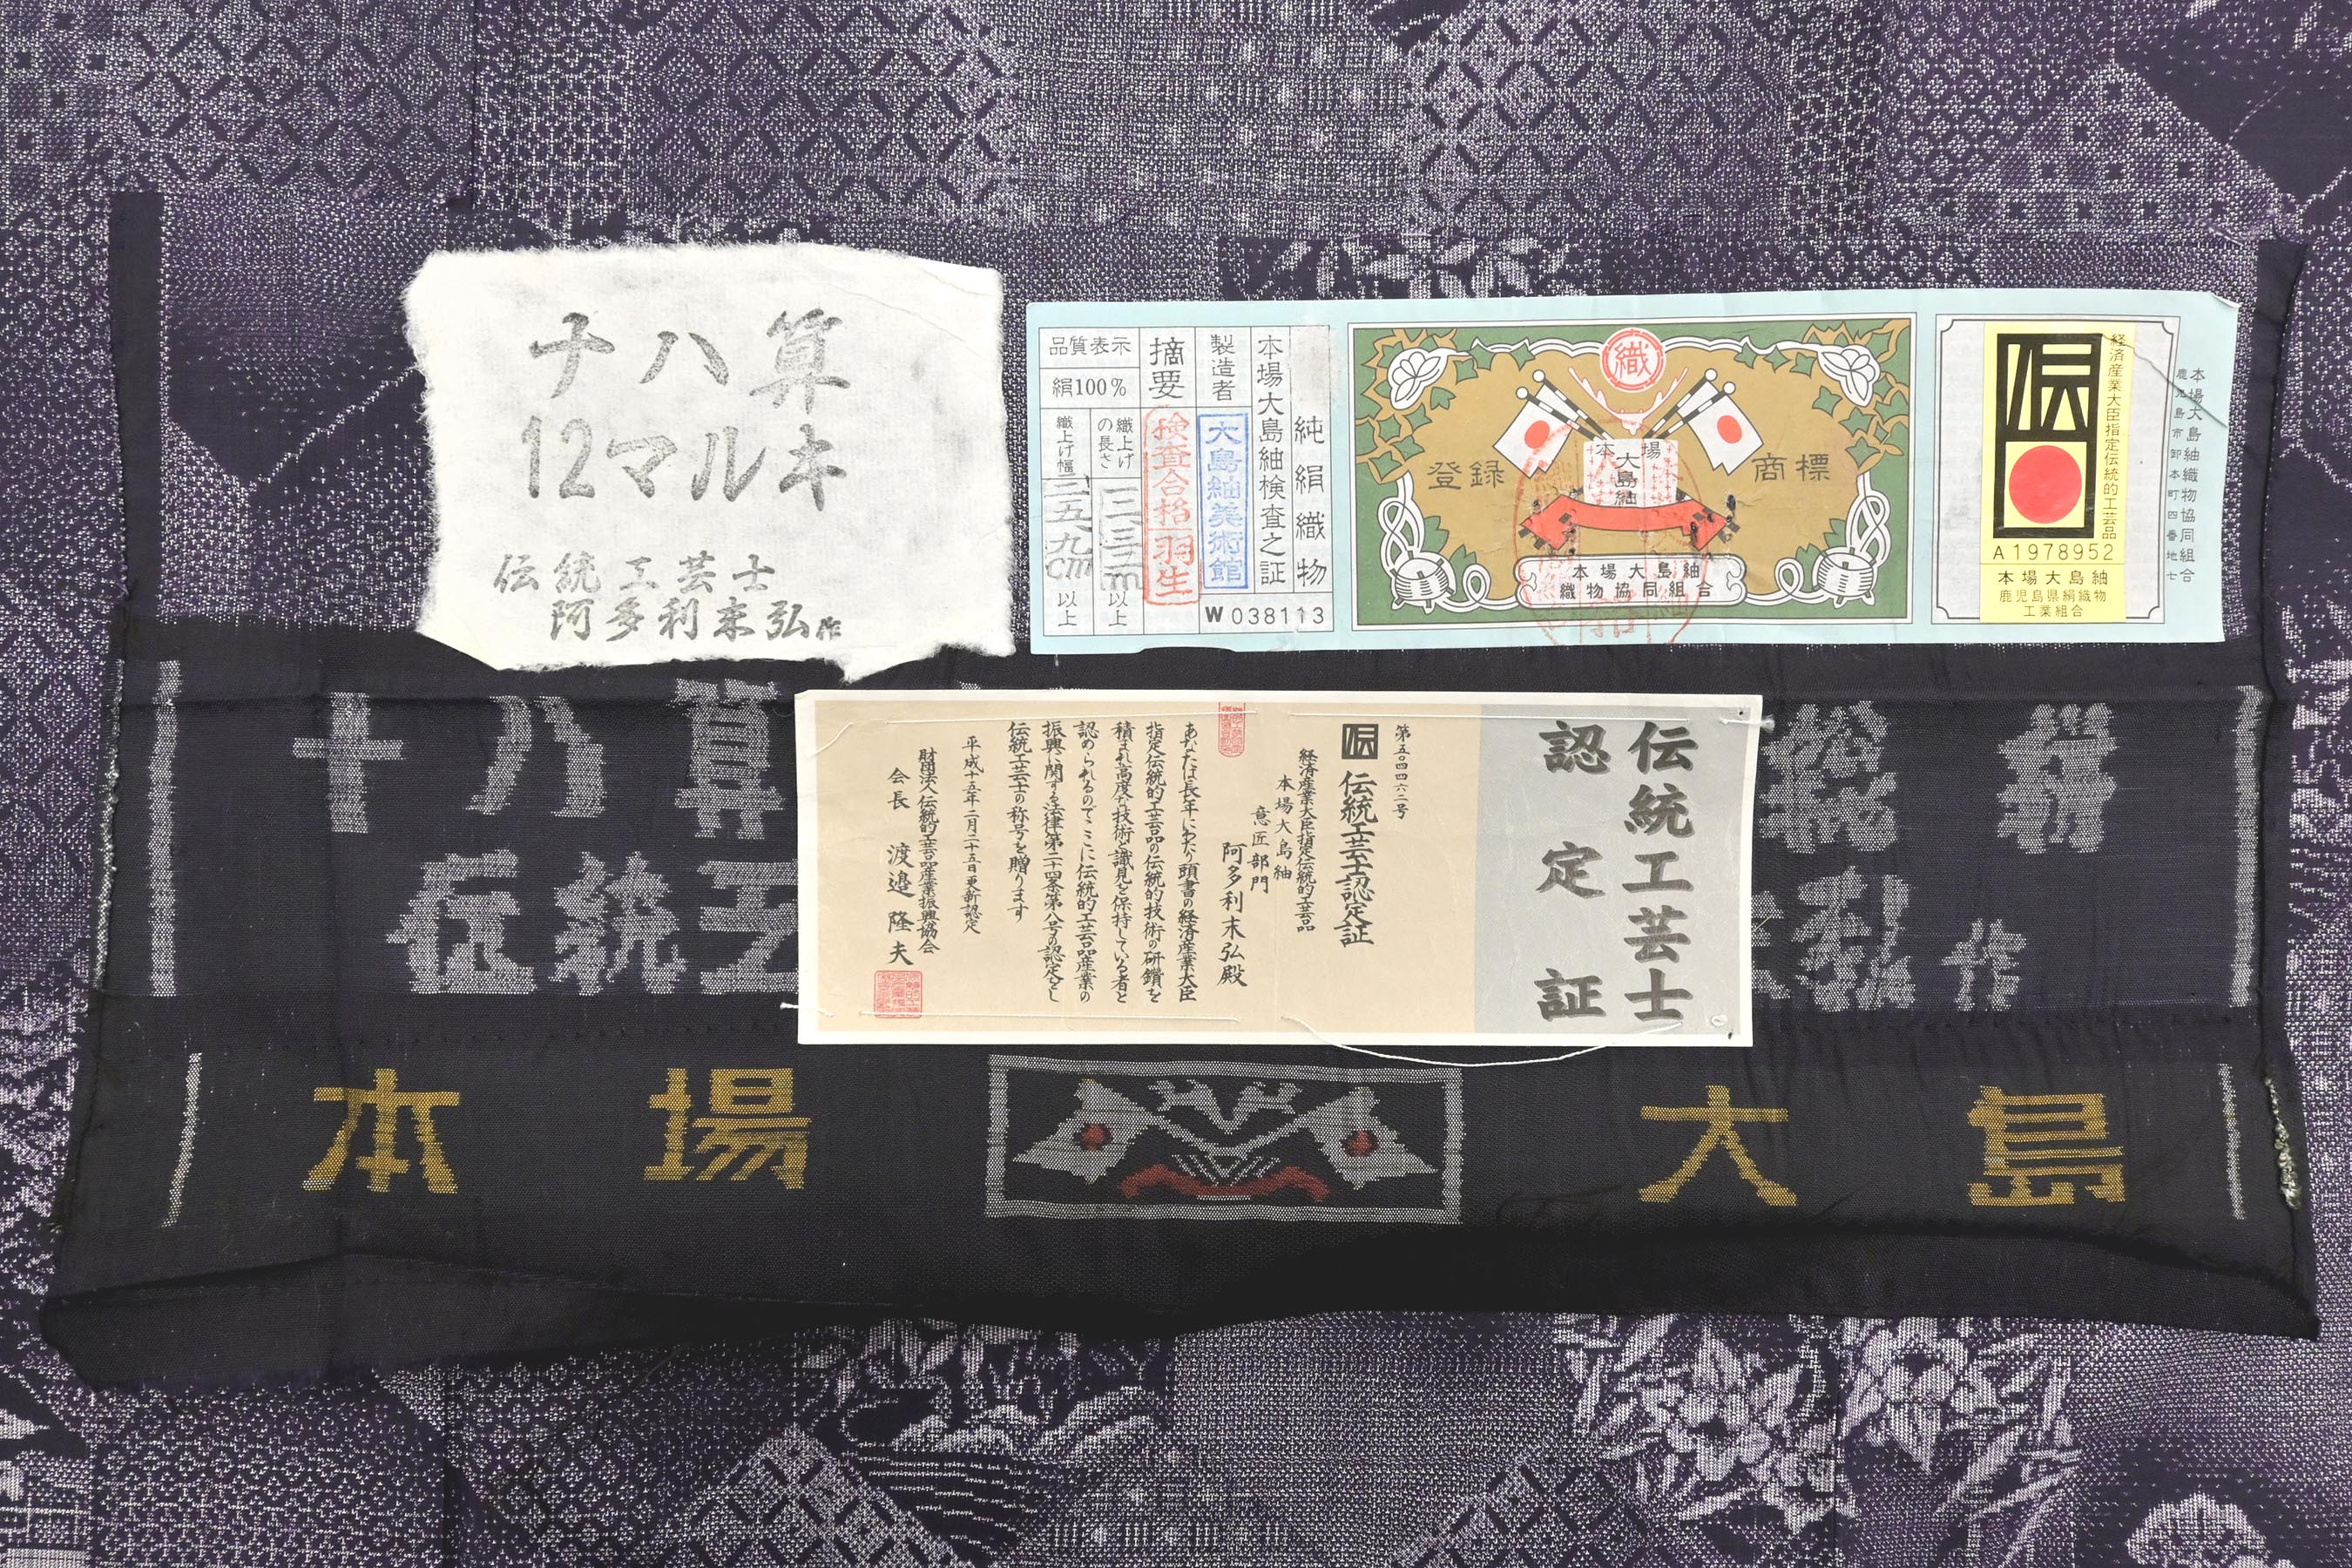 ナハ算
12マルキ
伝統工芸士
阿多利末弘作
純絹織物
本場大島紬検査之証
製造者
大島紬美術館
W038113
摘要
検査合格
羽生
品質表示
絹100%
織上げの長さ
以上
織上げ幅
三五、九cm以上
織
登録商標
本場
大島
紬
本場大島紬
織物協同組合
伝
経済産業大臣指定伝統的工芸品
A1978952
本場大島紬
鹿児島県絹織物
工業組合
本場大島紬織物協同組合
鹿児島市卸本町四番地七
伝統工芸士
認定証
第五〇四四六二号
伝 伝統工芸士認定証
経済産業大臣指定伝統的工芸品
本場大島紬
意匠部門
阿多利末弘殿
あなたは長年にわたり頭書の経済産業大臣
指定伝統的工芸品の伝統的技術の研鑽を
積まれ高度な技術と識見を保持している者と
認められるのでここに伝統的工芸品産業の
振興に関する法律第二十四条第八号の認定をし
伝統工芸士の称号を贈ります
平成十五年二月二十五日更新認定
財団法人伝統的工芸品産業振興協会
会長 渡邉隆夫
十八算
絣
伝統工
作
本場
大島